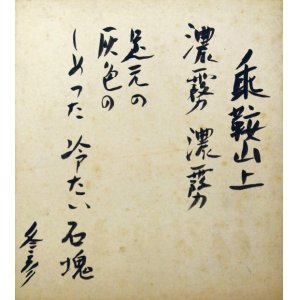 乗鞍山上
濃霧 濃霧
足元の
灰色の
しめった 冷たい 石塊